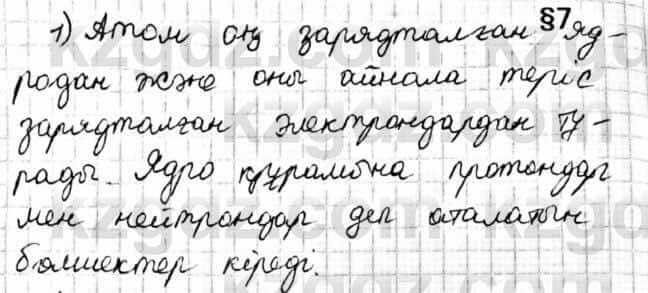 §7
1) Атом оң зарядталған яд-
родан және оны айнала теріс
зарядталған электрондардан тұ-
рады. Ядро құрамына протондар
мен нейтрондар деп аталатын
бөлшектер кіреді.